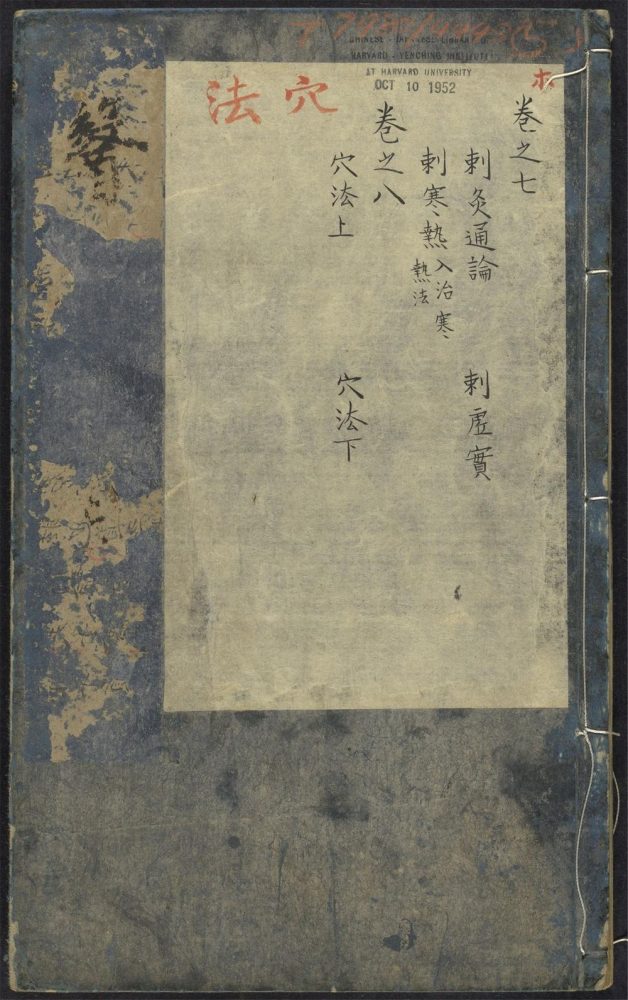 CHINESE - JAPANESE LIBRARY OF
HARVARD - YENCHING INSTITUTE
AT HARVARD UNIVERSITY
OCT 10 1952
ホ
穴法
卷之七
刺灸通論 刺虛實
刺寒熱 入治寒熱法
卷之八
穴法上 穴法下